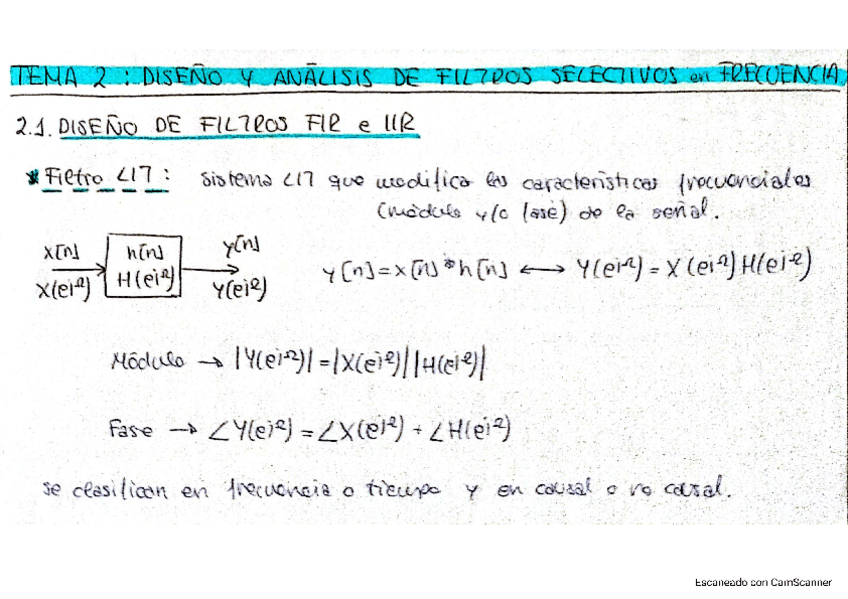 TEMA 2 : DISEÑO Y ANÁLISIS DE FILTROS SELECTIVOS en FRECUENCIA
2.1. DISEÑO DE FILTROS FIR e IIR
* Filtro LTI : Sistema LTI que modifica las características frecuenciales
(módulo y/o fase) de la señal.
x[n] h[n] y[n]
X(e^jΩ) H(e^jΩ) Y(e^jΩ)
y[n] = x[n] * h[n] ⟷ Y(e^jΩ) = X(e^jΩ) H(e^jΩ)
Módulo → |Y(e^jΩ)| = |X(e^jΩ)| |H(e^jΩ)|
Fase → ∠Y(e^jΩ) = ∠X(e^jΩ) + ∠H(e^jΩ)
se clasifican en frecuencia o tiempo y en causal o no causal.
Escaneado con CamScanner